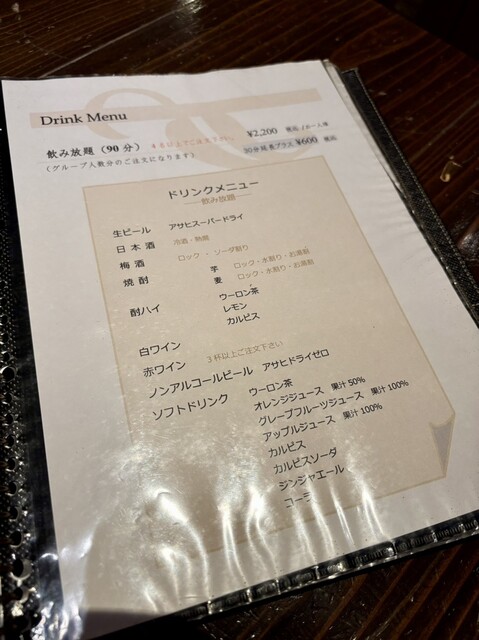 Drink Menu
飲み放題（90分） 4名以上でご注文下さい。 ¥2,200 税込 /お一人様
（グループ人数分のご注文になります） 30分延長プラス ¥600 税込
ドリンクメニュー
飲み放題
生ビール アサヒスーパードライ
日本酒 冷酒・熱燗
梅酒 ロック・ソーダ割り
焼酎 芋 ロック・水割り・お湯割
麦 ロック・水割り・お湯割
酎ハイ ウーロン茶
レモン
カルピス
白ワイン
赤ワイン 3杯以上ご注文下さい
ノンアルコールビール アサヒドライゼロ
ソフトドリンク ウーロン茶
オレンジジュース 果汁50%
グレープフルーツジュース 果汁100%
アップルジュース 果汁100%
カルピス
カルピスソーダ
ジンジャエール
コーラ